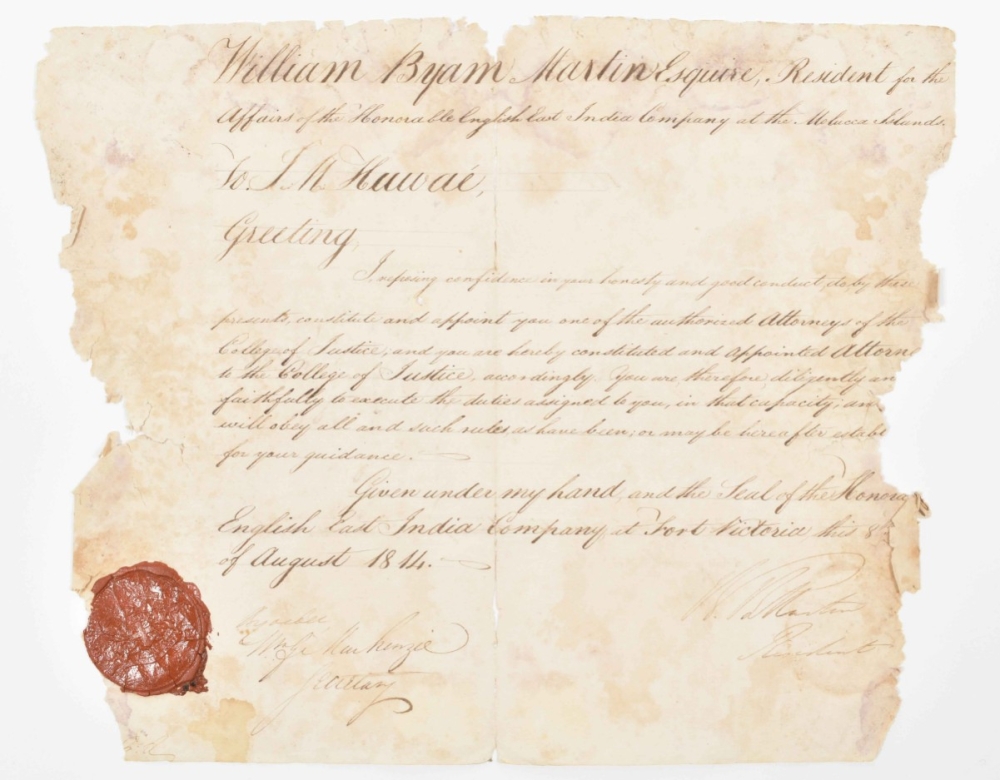 William Byam Martin Esquire, Resident for the
Affairs of the Honorable English East India Company at the Molucca Islands.
To J. M. Hawaé,
Greeting,
I, reposing confidence in your honesty and good conduct, do, by these
presents, constitute and appoint you one of the authorized Attorneys of the
College of Justice, and you are hereby constituted and appointed Attorn
to the College of Justice, accordingly. You are therefore diligently an
faithfully to execute the duties assigned to you, in that capacity; an
will obey all and such rules, as have been, or may be hereafter establ
for your guidance.
Given under my hand, and the Seal of the Honora
English East India Company at Fort Victoria this 8
of August 1814.
W. B. Martin
Resident
Mac Kenzie
Secretary